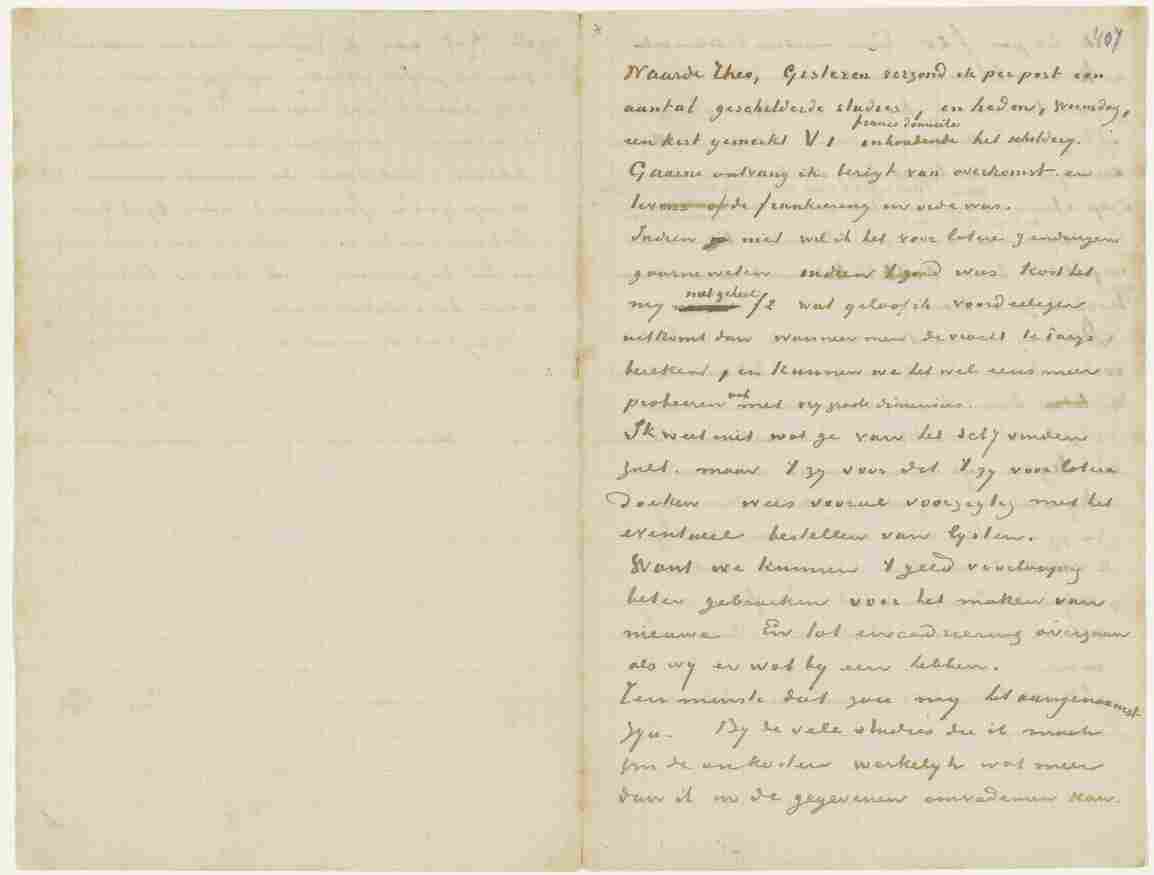 407
Waarde Theo, Gisteren verzond ik per post een
aantal geschilderde studies, en heden, woensdag,
franco domicile
een kist gemerkt V1 inhoudende het schilderij.
Gaarne ontvang ik berigt van overkomst en
tevens of de frankeering in orde was.
Indien niet wil ik het voor latere zendingen
gaarne weten indien 't goed was kost het
niet geheel
mij f2 wat geloof ik voordeeliger
uitkomt dan wanneer men de vracht
bereken, en kunnen we het wel eens meer
ook
probeeren met vrij groote dimensies.
Ik weet niet wat ge van het schij vinden
zult. maar 't zij voor dit 't zij voor latere
doeken wees vooral voorzigtig met het
eventueel bestellen van lysten.
Want we kunnen 't geld voorloopig
beter gebruiken voor het maken van
nieuwe En tot encadreering overgaan
als wij er wat bij een hebben.
Ten minste dat zou mij het aangenaamst
zijn. Bij de vele studies die ik maak
zyn de onkosten werkelyk wat meer
dan ik in de gegevenen omvademen kan.